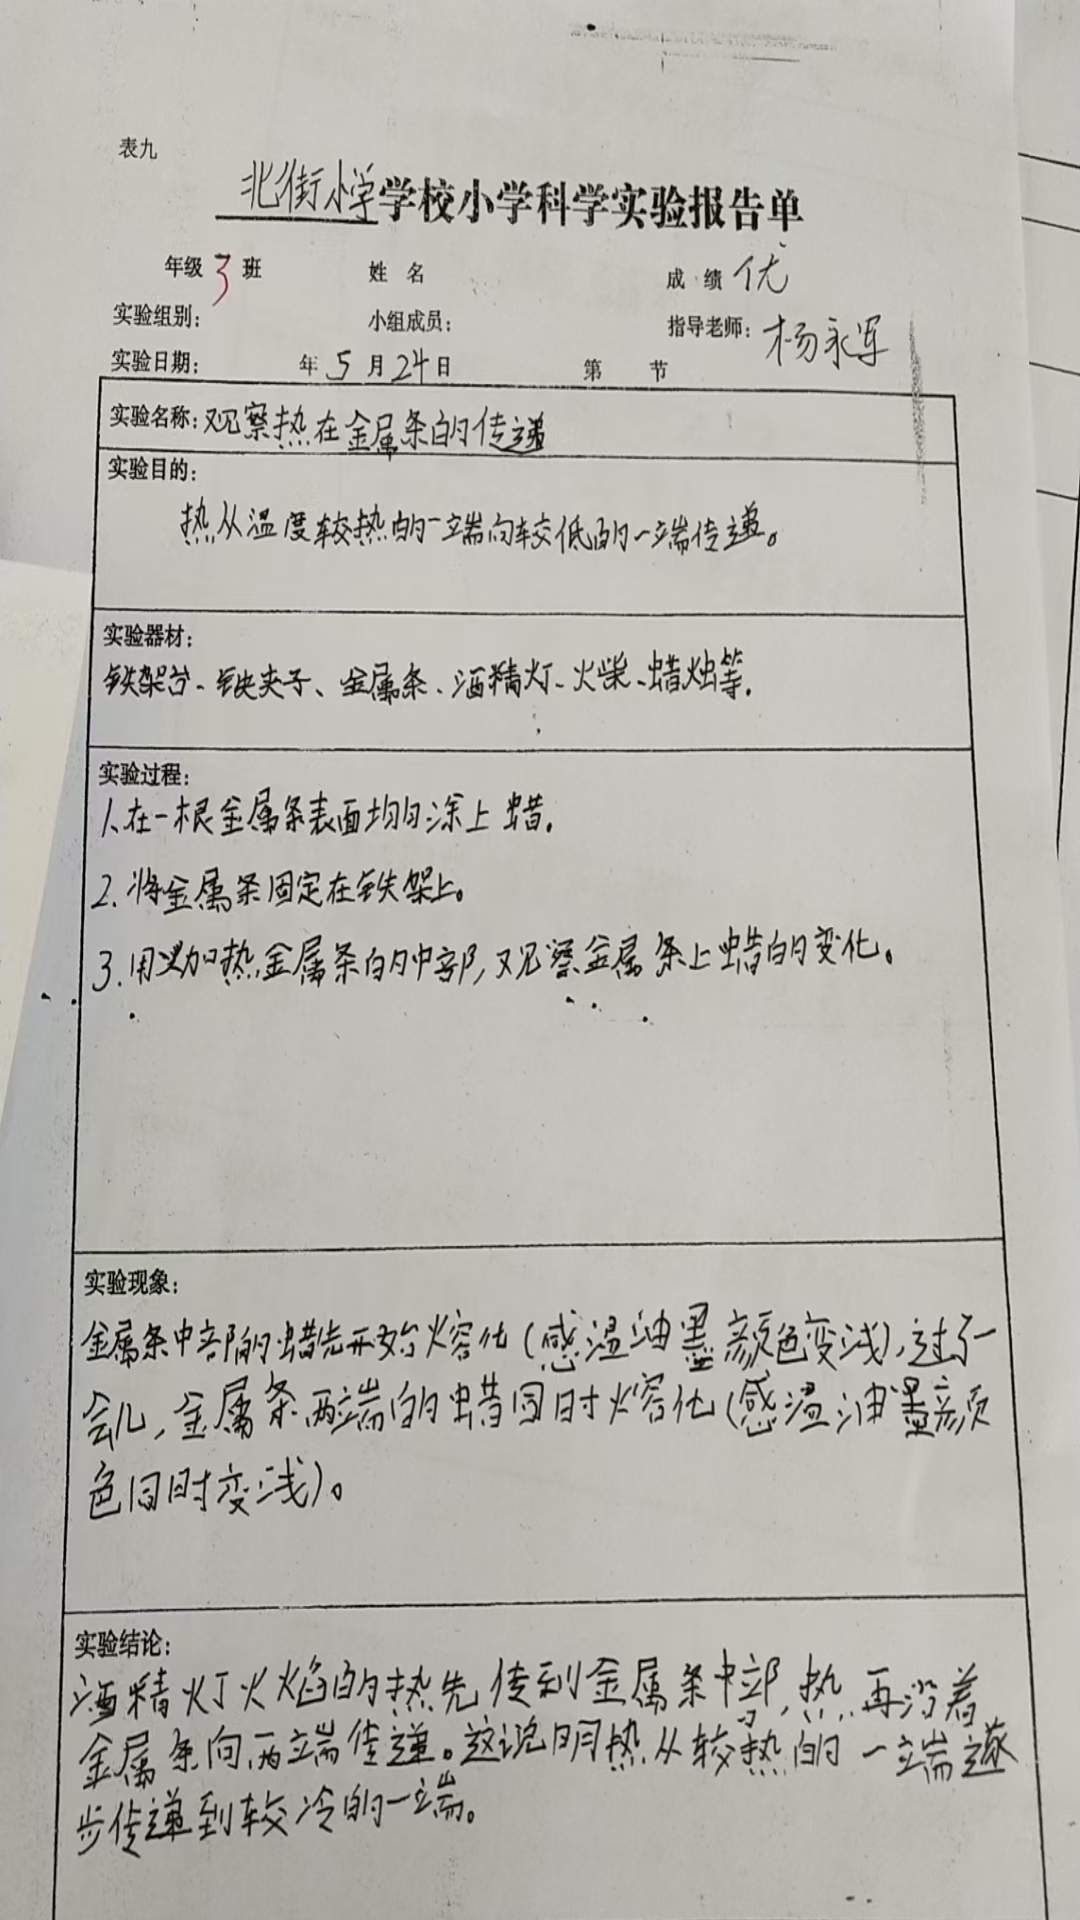 表九
北街小学学校小学科学实验报告单
年级 3 班 姓 名 成 绩 优
实验组别: 小组成员: 指导老师: 杨永军
实验日期: 年 5 月 24 日 第 节
实验名称: 观察热在金属条的传递
实验目的:
热从温度较热的一端向较低的一端传递。
实验器材:
铁架台、铁夹子、金属条、酒精灯、火柴、蜡烛等.
实验过程:
1、在一根金属条表面均匀涂上蜡.
2. 将金属条固定在铁架上。
3. 用 加热金属条的中部,观察金属条上蜡的变化。
实验现象:
金属条中部的蜡先开始熔化(感温油墨颜色变浅),过了一
会儿,金属条两端的蜡同时熔化(感温油墨颜
色同时变浅)。
实验结论:
酒精灯火焰的热先传到金属条中部,热再沿着
金属条向两端传递。这说明热从较热的一端逐
步传递到较冷的一端。